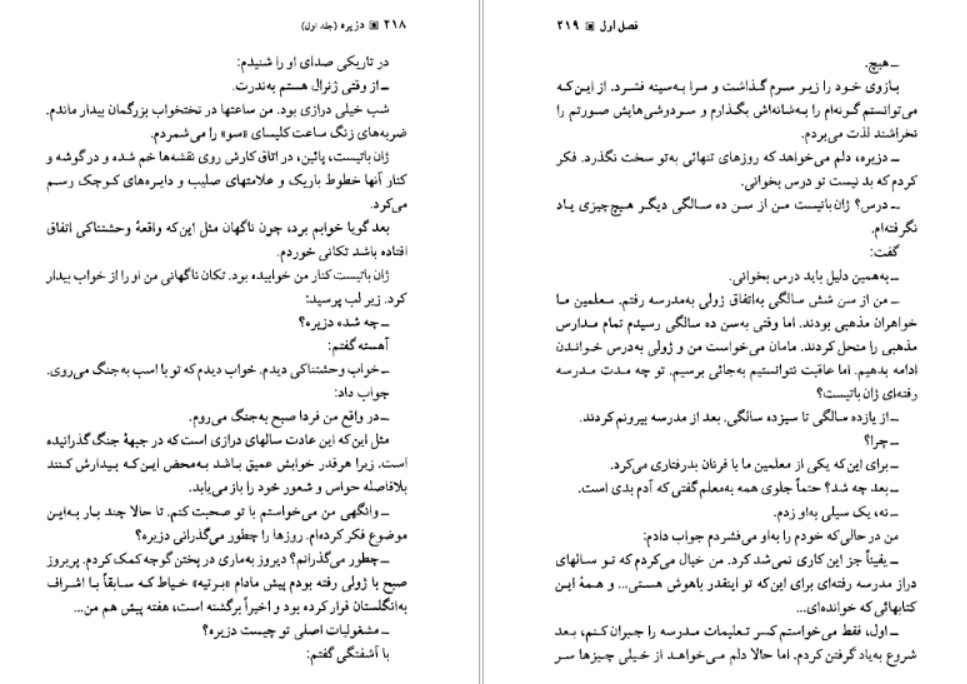 ۲۱۸ ▣ دزیره (جلد اول)
در تاریکی صدای او را شنیدم:
ـ از وقتی ژنرال هستم به‌ندرت.
شب خیلی درازی بود. من ساعتها در تختخواب بزرگمان بیدار ماندم.
ضربه‌های زنگ ساعت کلیسای «سو» را می‌شمردم.
ژان باتیست، پائین، در اتاق کارش روی نقشه‌ها خم شده و در گوشه و
کنار آنها خطوط باریک و علامتهای صلیب و دایره‌های کوچک رسم
می‌کرد.
بعد گویا خوابم برد، چون ناگهان مثل این‌که واقعهٔ وحشتناکی اتفاق
افتاده باشد تکانی خوردم.
ژان باتیست کنار من خوابیده بود. تکان ناگهانی من او را از خواب بیدار
کرد. زیر لب پرسید:
ـ چه شده دزیره؟
آهسته گفتم:
ـ خواب وحشتناکی دیدم. خواب دیدم که تو با اسب به‌جنگ می‌روی.
جواب داد:
ـ در واقع من فردا صبح به‌جنگ می‌روم.
مثل این‌که این عادت سالهای درازی است که در جبههٔ جنگ گذرانیده
است. زیرا هرقدر خوابش عمیق باشد به‌محض این‌که بیدارش کنند
بلافاصله حواس و شعور خود را باز می‌یابد.
ـ وانگهی من می‌خواستم با تو صحبت کنم. تا حالا چند بار به‌این
موضوع فکر کرده‌ام. روزها را چطور می‌گذرانی دزیره؟
ـ چطور می‌گذرانم؟ دیروز به‌ماری در پختن گوجه کمک کردم. پریروز
صبح با ژولی رفته بودم پیش مادام «برتیه» خیاط که سابقاً با اشراف
به‌انگلستان فرار کرده بود و اخیراً برگشته است، هفته پیش هم من...
ـ مشغولیات اصلی تو چیست دزیره؟
با آشفتگی گفتم:
فصل اول ▣ ۲۱۹
ـ هیچ.
بازوی خود را زیر سرم گذاشت و مرا به‌سینه فشرد. از این‌که
می‌توانستم گونه‌ام را به‌شانه‌اش بگذارم و سردوشی‌هایش صورتم را
نخراشند لذت می‌بردم.
ـ دزیره، دلم می‌خواهد که روزهای تنهائی به‌تو سخت نگذرد. فکر
کردم که بد نیست تو درس بخوانی.
ـ درس؟ ژان باتیست من از سن ده سالگی دیگر هیچ‌چیزی یاد
نگرفته‌ام.
گفت:
ـ به‌همین دلیل باید درس بخوانی.
ـ من از سن شش سالگی به‌اتفاق ژولی به‌مدرسه رفتم. معلمین ما
خواهران مذهبی بودند. اما وقتی به‌سن ده سالگی رسیدم تمام مدارس
مذهبی را منحل کردند. مامان می‌خواست من و ژولی به‌درس خواندن
ادامه بدهیم. اما عاقبت نتوانستیم به‌جائی برسیم. تو چه مدت مدرسه
رفته‌ای ژان باتیست؟
ـ از یازده سالگی تا سیزده سالگی. بعد از مدرسه بیرونم کردند.
ـ چرا؟
ـ برای این‌که یکی از معلمین ما با فرنان بدرفتاری می‌کرد.
ـ بعد چه شد؟ حتماً جلوی همه به‌معلم گفتی که آدم بدی است.
ـ نه، یک سیلی به‌او زدم.
من در حالی‌که خودم را به‌او می‌فشردم جواب دادم:
ـ یقیناً جز این کاری نمی‌شد کرد. من خیال می‌کردم که تو سالهای
دراز مدرسه رفته‌ای برای این‌که تو اینقدر باهوش هستی... و همهٔ این
کتابهائی که خوانده‌ای...
ـ اول، فقط می‌خواستم کسر تعلیمات مدرسه را جبران کنم، بعد
شروع به‌یاد گرفتن کردم. اما حالا دلم می‌خواهد از خیلی چیزها سر